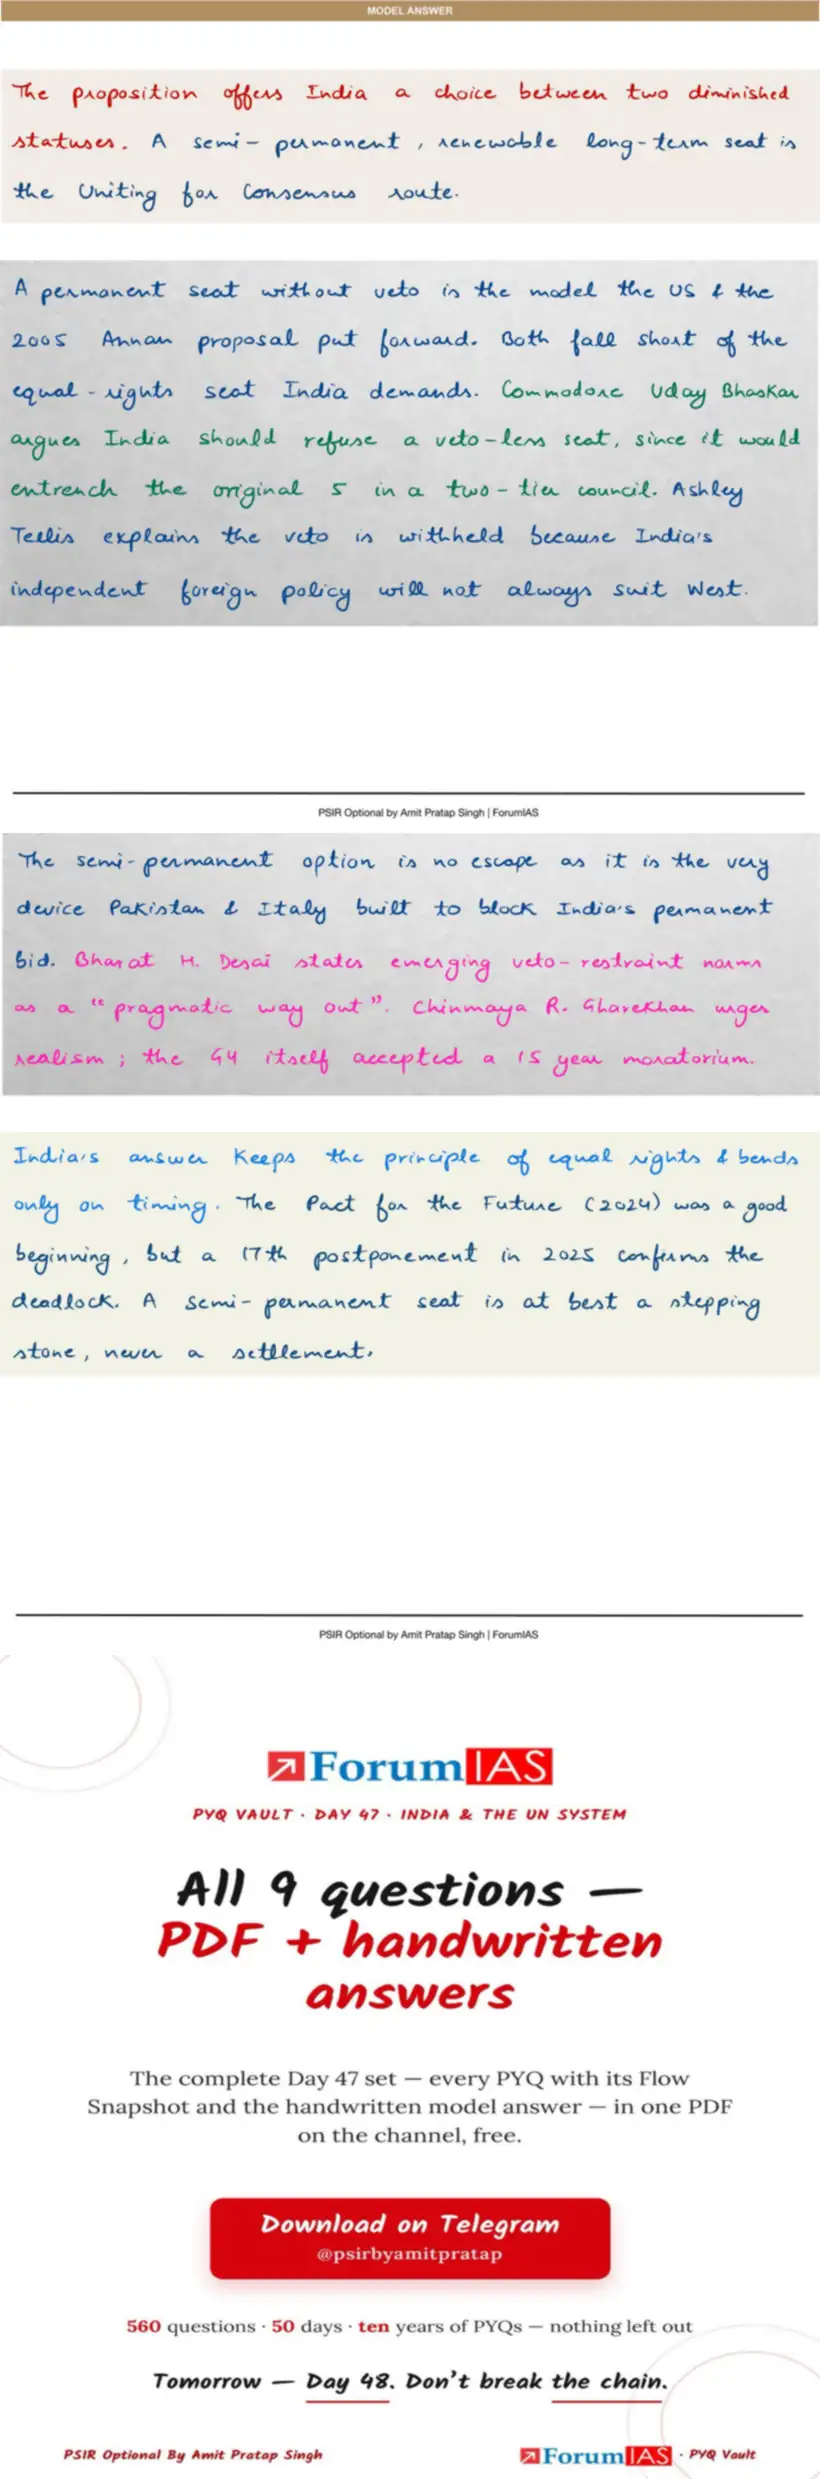 MODEL ANSWER
The proposition offers India a choice between two diminished
statuses. A semi-permanent, renewable long-term seat is
the Uniting for Consensus route.
A permanent seat without veto is the model the US & the
2005 Annan proposal put forward. Both fall short of the
equal-rights seat India demands. Commodore Uday Bhaskar
argues India should refuse a veto-less seat, since it would
entrench the original 5 in a two-tier council. Ashley
Tellis explains the veto is withheld because India's
independent foreign policy will not always suit West.
PSIR Optional by Amit Pratap Singh | ForumIAS
The semi-permanent option is no escape as it is the very
device Pakistan & Italy built to block India's permanent
bid. Bharat H. Desai states emerging veto-restraint norms
as a "pragmatic way out". Chinmaya R. Gharekhan urges
realism; the G4 itself accepted a 15 year moratorium.
India's answer keeps the principle of equal rights & bends
only on timing. The Pact for the Future (2024) was a good
beginning, but a 17th postponement in 2025 confirms the
deadlock. A semi-permanent seat is at best a stepping
stone, never a settlement.
PSIR Optional by Amit Pratap Singh | ForumIAS
ForumIAS
PYQ VAULT · DAY 47 · INDIA & THE UN SYSTEM
All 9 questions —
PDF + handwritten
answers
The complete Day 47 set — every PYQ with its Flow
Snapshot and the handwritten model answer — in one PDF
on the channel, free.
Download on Telegram
@psirbyamitpratap
560 questions · 50 days · ten years of PYQs — nothing left out
Tomorrow — Day 48. Don't break the chain.
PSIR Optional By Amit Pratap Singh
ForumIAS · PYQ Vault